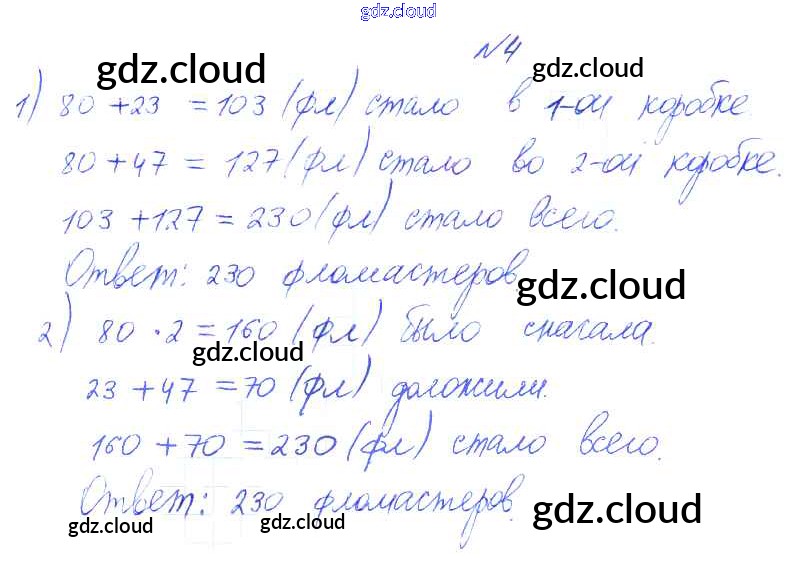 gdz.cloud
№4
gdz.cloud gdz.cloud
1) 80 + 23 = 103 (фл) стало в 1-ой коробке.
80 + 47 = 127 (фл) стало во 2-ой коробке.
103 + 127 = 230 (фл) стало всего.
Ответ: 230 фломастеров
gdz.cloud
2) 80 · 2 = 160 (фл) было сначала.
gdz.cloud
23 + 47 = 70 (фл) доложили.
160 + 70 = 230 (фл) стало всего.
Ответ: 230 фломастеров.
gdz.cloud gdz.cloud gdz.cloud